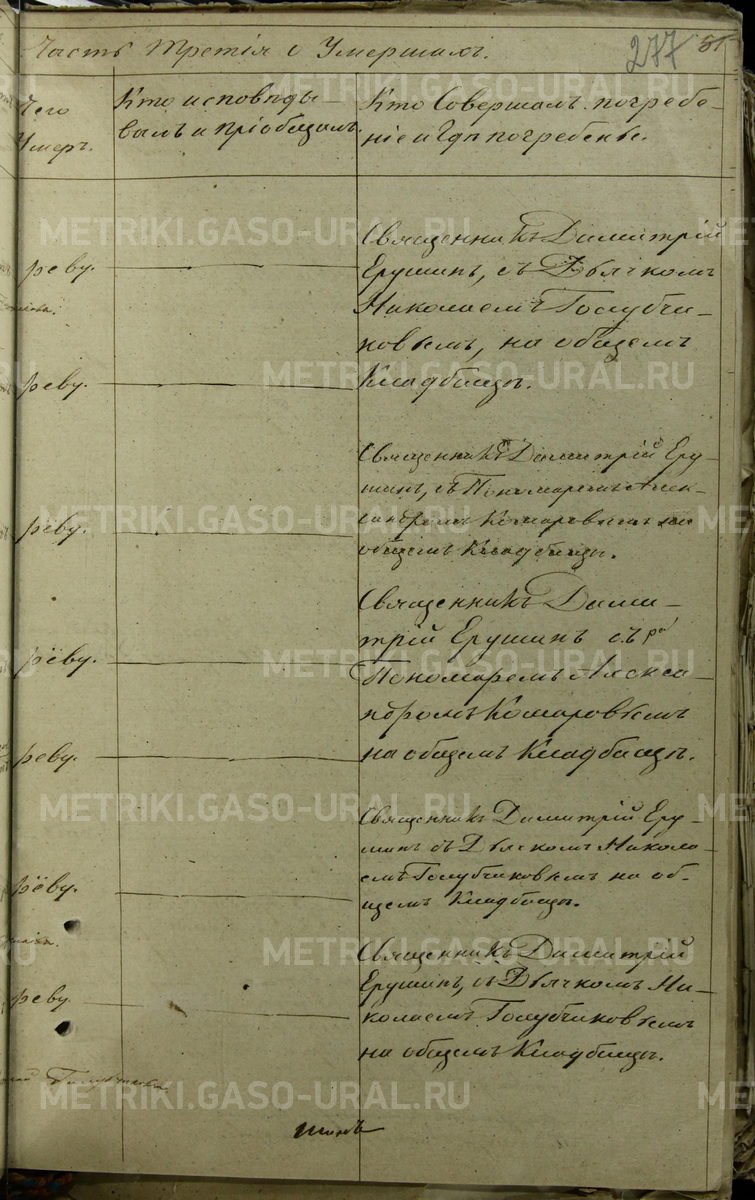 Часть третія о Умершихъ.
277
Чего
Умеръ.
Кто исповѣды-
валъ и пріобщалъ.
Кто Совершалъ погребе-
ніе и гдѣ погребены.
реву.
Священникъ Димитрій
Ерушинъ, съ Дьячкомъ
Николаемъ Голубчи-
ковымъ, на общемъ
Кладбищѣ.
реву.
Священникъ Димитрій Еру-
шинъ, съ Пономаремъ Алек-
сандромъ Комаровымъ на
общемъ Кладбищѣ.
реву.
Священникъ Дими-
трій Ерушинъ съ
Пономаремъ Алекса-
ндромъ Комаровымъ
на общемъ Кладбищѣ.
рёву.
реву.
Священникъ Димитрій Еру-
шинъ съ Дьячкомъ Никола-
емъ Голубчиковымъ на об-
щемъ Кладбищѣ.
рёву.
Священникъ Димитрій
Ерушинъ, съ Дьячкомъ Ни-
колаемъ Голубчиковымъ
на общемъ Кладбищѣ.
реву.
METRIKI.GASO-URAL.RU